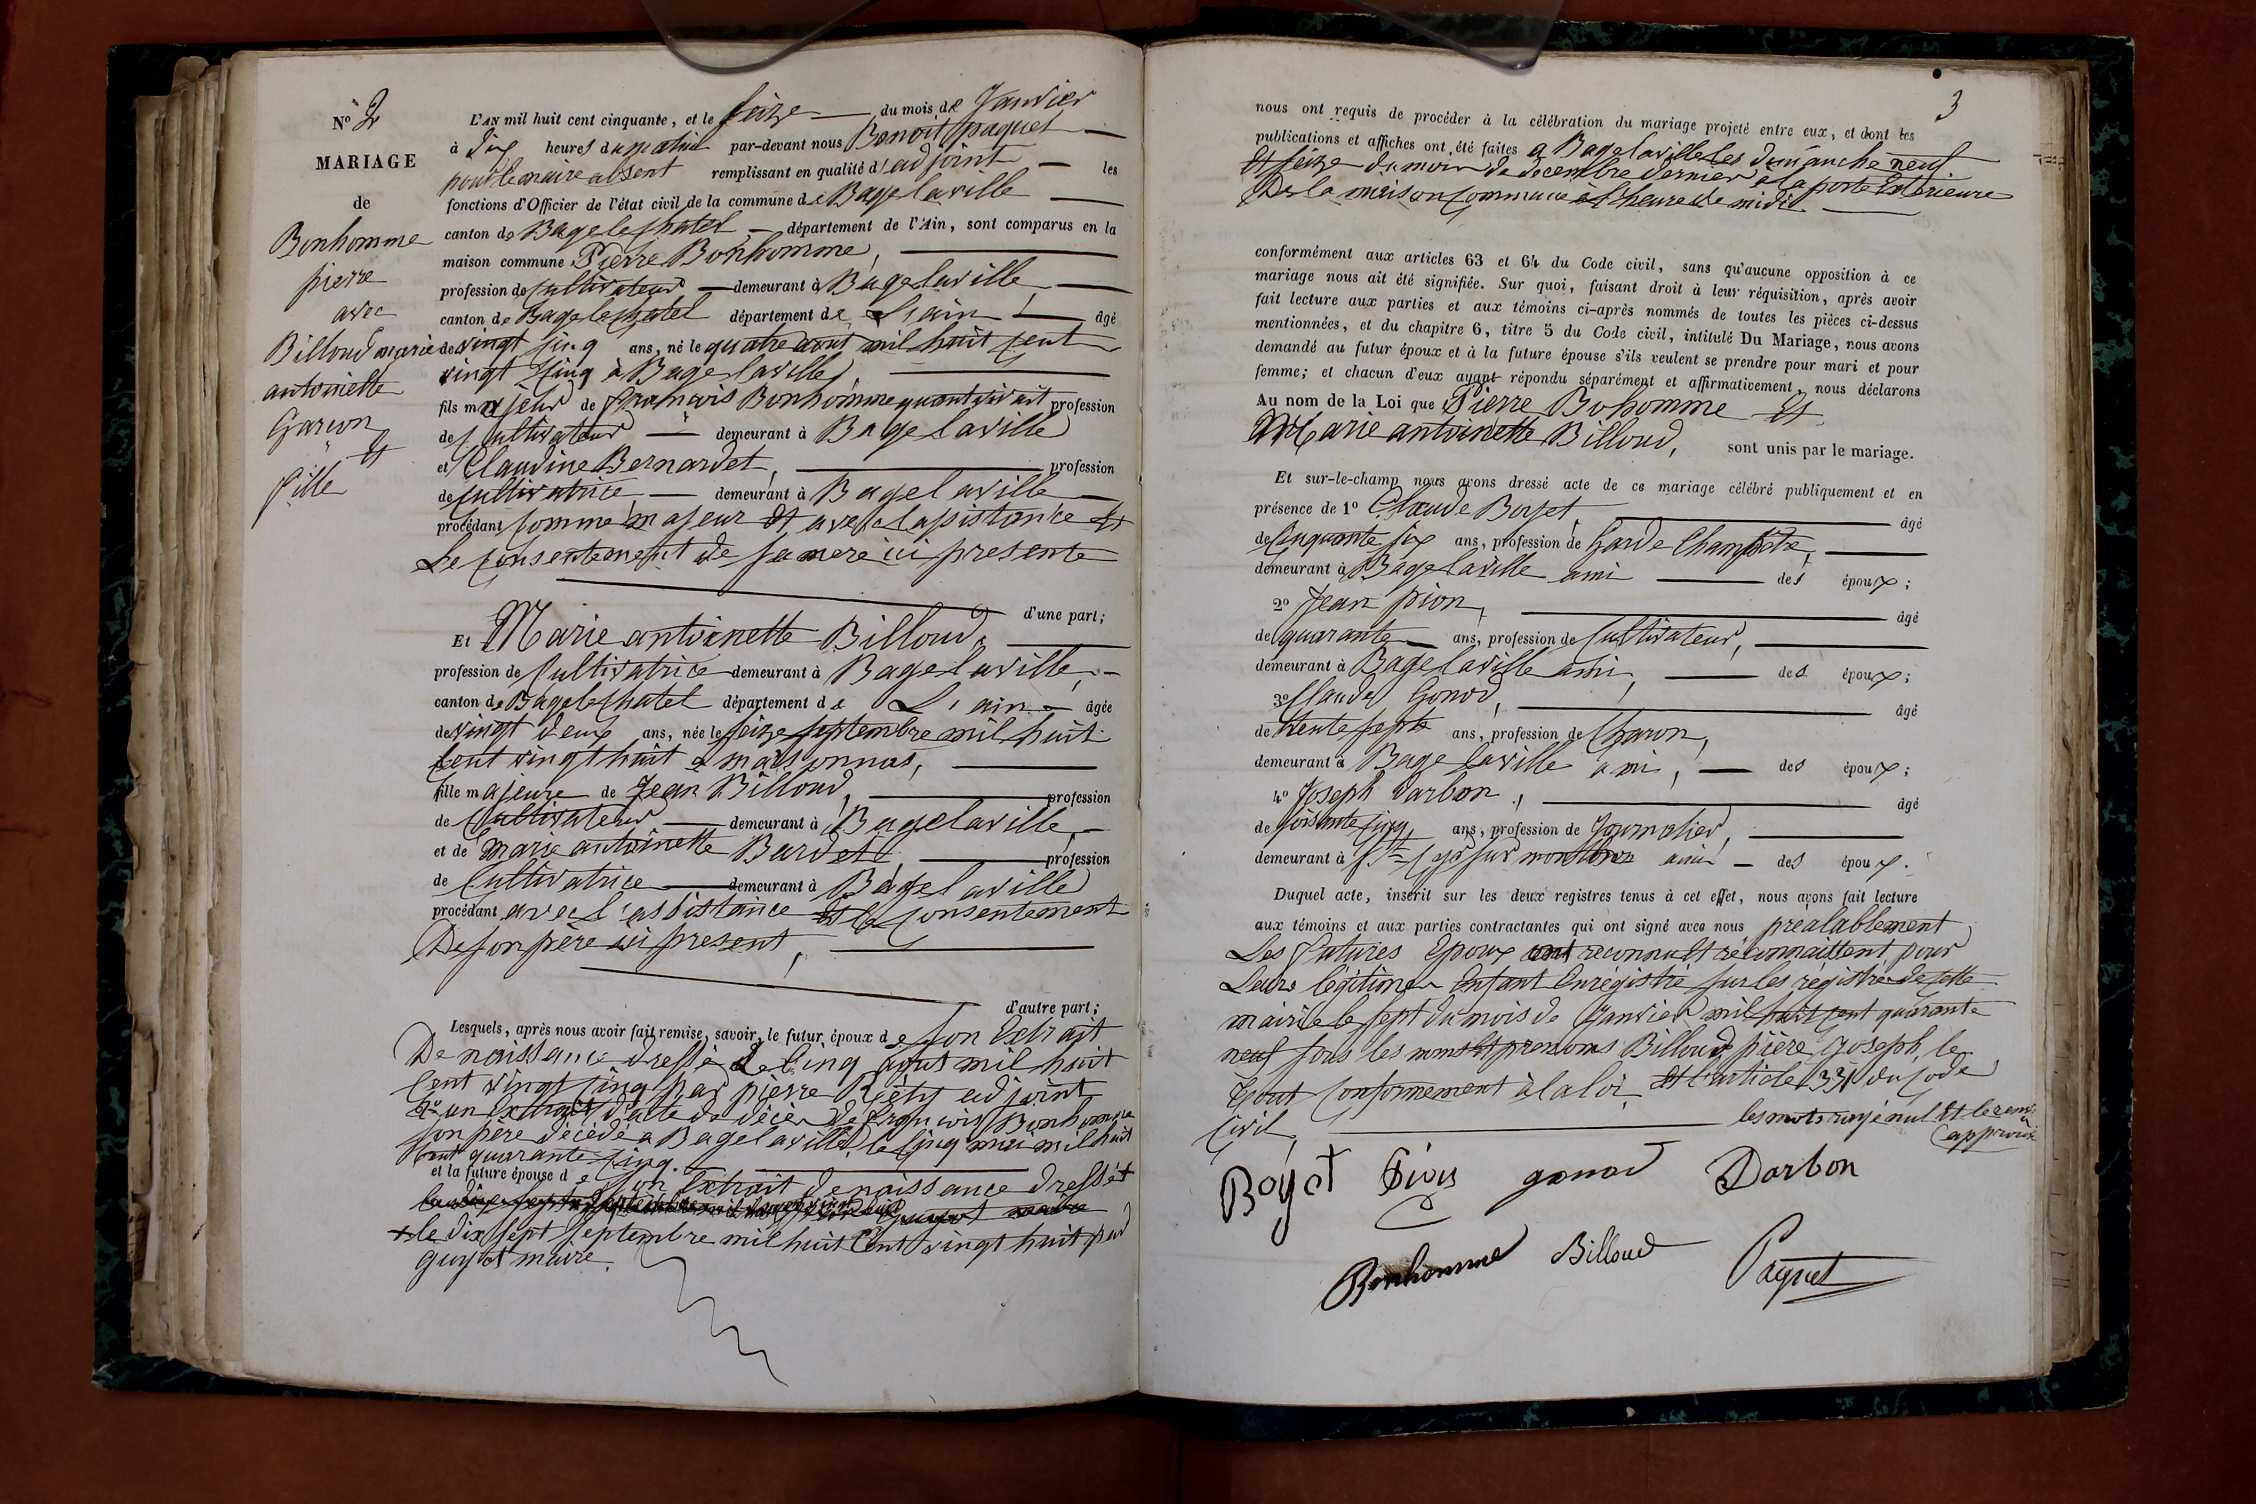 No 2
MARIAGE
de
Bonhomme
pierre
avec
Billoud marie
antoinette
Garcon
et
fille
L'AN mil huit cent cinquante, et le seize du mois de Janvier
à dix heures du matin par-devant nous Benoit paquet
pour le maire absent remplissant en qualité d'adjoint les
fonctions d'Officier de l'état civil de la commune de Bagelaville
canton de Bagelechatel département de l'Ain, sont comparus en la
maison commune Pierre Bonhomme,
profession de Cultivateur demeurant à Bagelaville,
canton de Bagelechatel département de L'ain âgé
de vingt cinq ans, né le quatre aout mil huit cent
vingt cinq à Bagelaville,
fils majeur de francois Bonhomme quant vivait profession
de Cultivateur demeurant à Bagelaville
et Claudine Bernardet, profession
de Cultivatrice demeurant à Bagelaville
procédant comme majeur et avec lasistance et
Le consentement de sa mere ici presente
d'une part;
Et Marie antoinette Billoud,
profession de Cultivatrice demeurant à Bagelaville,
canton de Bagelechatel département de L'ain âgée
de vingt deux ans, née le seize septembre mil huit
cent vingt huit a maisonnas,
fille majeure de Jean Billoud, profession
de Cultivateur demeurant à Bagelaville,
et de marie antoinette Bardet, profession
de Cultivatrice demeurant à Bagelaville
procédant avec l'assistance et le consentement
De son père ici present,
d'autre part;
Lesquels, après nous avoir fait remise, savoir, le futur époux de son Extrait
De naissance dressé le Cinq aout mil huit
Cent vingt cinq par pierre Réty adjoint
2o un Extrait d'acte de décès de françois Bonhomme
son père décédé a Bagelaville le Cinq mai mil huit
Cent quarante cinq.
et la future épouse de son Extrait de naissance dressé +
+ le dix sept septembre mil huit Cent vingt huit par
guyot maire.
3
nous ont requis de procéder à la célébration du mariage projeté entre eux, et dont les
publications et affiches ont été faites a Bagelaville les dimanche neuf
Et seize du mois de decembre dernier à la porte Extérieure
De la maison Commune à l'heure de midi
conformément aux articles 63 et 64 du Code civil, sans qu'aucune opposition à ce
mariage nous ait été signifiée. Sur quoi, faisant droit à leur réquisition, après avoir
fait lecture aux parties et aux témoins ci-après nommés de toutes les pièces ci-dessus
mentionnées, et du chapitre 6, titre 5 du Code civil, intitulé Du Mariage, nous avons
demandé au futur époux et à la future épouse s'ils veulent se prendre pour mari et pour
femme; et chacun d'eux ayant répondu séparément et affirmativement, nous déclarons
Au nom de la Loi que Pierre Bohomme Et
Marie antoinette Billoud, sont unis par le mariage.
Et sur-le-champ nous avons dressé acte de ce mariage célébré publiquement et en
présence de 1o Claude Boyet âgé
de Cinquante six ans, profession de Garde Champetre,
demeurant à Bagelaville ami des époux;
2o Jean pion, âgé
de quarante ans, profession de Cultivateur,
demeurant à Bagelaville ami, des époux;
3o Claude Gonod, âgé
de trente sept ans, profession de Charon,
demeurant à Bagelaville ami, des époux;
4o Joseph Darbon, âgé
de soisante cinq, ans, profession de Journalier,
demeurant à ami des époux.
Duquel acte, inscrit sur les deux registres tenus à cet effet, nous avons fait lecture
aux témoins et aux parties contractantes qui ont signé avec nous préalablement
Les futures Epoux ont reconnu Et réconnaissent pour
Leurs légitimes Enfant Enrégistré sur les régistre de cette
mairie le sept du mois de Janvier mil huit cent quarante
neuf sous les noms Et prenoms Billoud pièrre Joseph, le
tout Conformement à la loi, Et l'article 331 du Code
Civil, les mots rayé nul Et le renvoi
approuvé
Boyet Pion gonod Darbon
Bonhomme Billoud Paquet